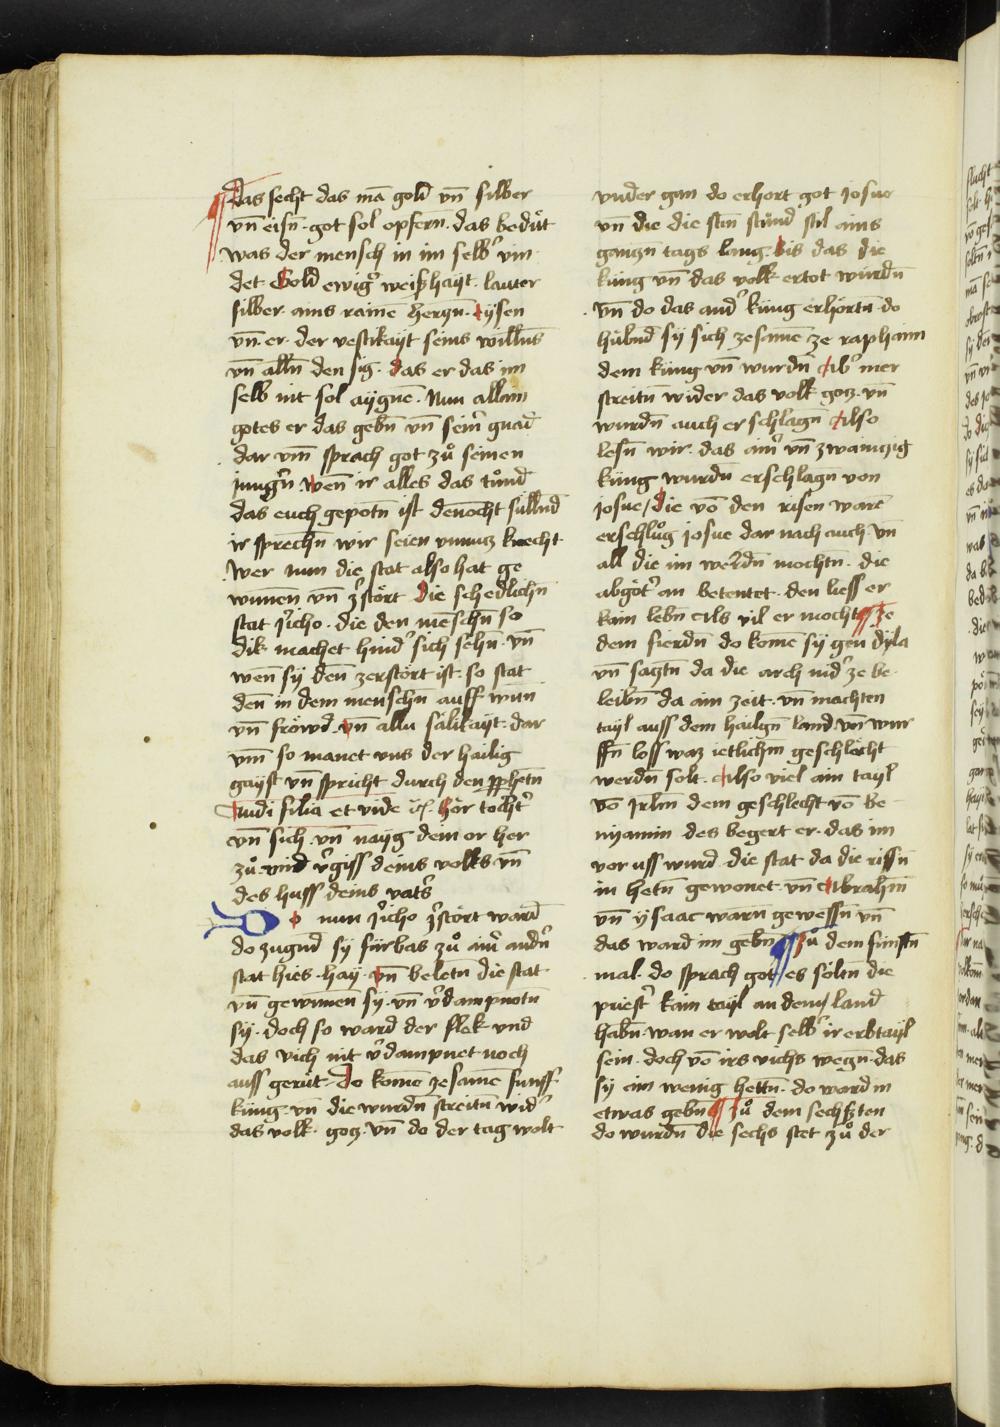 Das secht das mā gold vn̄ silber
vn̄ eisn̄ · got sol opfern · das bedüt
was der mensch in im selb̕ vin
det Gold ewig̕ weißhayt · lauter
silber ains raine herczn̄ · eysen
vn̄ er · der vestikayt seins willens
vn̄ alln̄ den sig · das er das im
selb nit sol aÿgne · Nun allain
gotes er das gebn̄ vn̄ sein̕ gnad
dar vm̄ sprach got zů seinen
jungn̄ wen̄ ir alles das tůnd
das euch gepotn̄ ist dēnocht süllnd
ir sprechn̄ wir seien vnnucz knecht
Wer nun die stat also hat ge
wunnen vn̄ z̕stört Die schedlichn̄
stat j̕icho · die den menschn̄ so
dik machet hind̕ sich sehn̄ vn̄
wen̄ sy den̄ zerstört ist · so stat
den̄ in dem menschn̄ auff wun̄
vn̄ fröwd · vn̄ allu sälikaÿt · dar
vm̄ so manet vns der hailig
gaÿst vn̄ spricht durch den pphetn̄
Audi filia et vide · hör tocht̕
vn̄ sich vn̄ naÿg dein or her
zů vnd v̕giss deins volks vn̄
des huss deins vat̕s
Do nun j̕icho z̕stört ward
do zugnd sy fürbas zů ain̕ andn̕
stat hies · hay · vn̄ beletn̄ die stat
vn̄ gewunnen sÿ · vn̄ v̕dampnotn̄
sÿ · doch so ward der flek vnd
das vich nit v̕dampnet noch
auss gerüt · Do komē zesamē funff
küng vn̄ die wurdn̄ streitn̄ wid̕
das volk gocz · vn̄ do der tag wolt
vnder gan do erhort got josue
vn̄ die die sun̄ stůnd stil ains
ganczn tags lang · bis das die
küng vn̄ das volk ertöt wurdn̄
vn̄ do das and̕ küng erhörtn̄ · do
hůbnd sÿ sich zesamē ze raphaim
dem küng vn̄ wurdn̄ Ab̕ mer
streitn̄ wider das volk gocz · vn̄
wurdn̄ auch erschlagn̄ Also
lesn̄ wir · das ain̕ vn̄ zwainczig
küng wurdn̄ erschlagn̄ von
josue / die vō den risen warē
erschlůg josue dar nach auch · vn̄
all die im werdn̄ mochtn̄ · die
abgöt̕ an betentet · den liess er
kain lebn̄ Als vil er mocht Ze
dem fierdn̄ do komē sy gen dyla
vn̄ sagtn̄ da die arch nid̕ ze be
leibn̄ da ain zeit · vn̄ machten
taÿl auss dem hailgn̄ land vn̄ wur
ffn̄ loss waz ietlichm geschlächt
werdn̄ solt · Also viel ain tayl
vō jrlm̄ dem geschlecht vō be
nyamin des begert er · das im
vor uss wurd die stat da die rissn̄
in hetn̄ gewonet · vn̄ Abrahm̄
vn̄ ysaac warn̄ gewessn̄ vn̄
das ward im gebn̄ Zů dem fünftn̄
mal · do sprach got / es söltn̄ die
priest̕ kain tayl an dem land
habn̄ · wan er wolt selb̕ ir erbtaÿl
sein · doch vō irs vichs wegn̄ · das
sÿ ain wenig hettn̄ · do ward in
etwas gebn̄ Zů dem sechszten
do wurdn̄ die sechs stet zů der